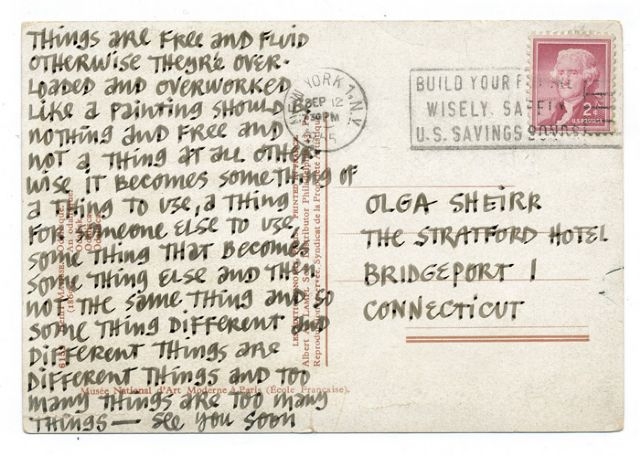 THINGS ARE FREE AND FLUID
OTHERWISE THEY'RE OVER-
LOADED AND OVERWORKED
LIKE A PAINTING SHOULD BE
NOTHING AND FREE AND
NOT A THING AT ALL OTHER-
WISE IT BECOMES SOMETHING OF
A THING TO USE, A THING
FOR SOMEONE ELSE TO USE,
SOME THING THAT BECOMES
SOME THING ELSE AND THEN
NOT THE SAME THING AND SO
SOME THING DIFFERENT AND
DIFFERENT THINGS ARE
DIFFERENT THINGS AND TOO
MANY THINGS ARE TOO MANY
THINGS — SEE YOU SOON
NEW YORK 1, N.Y.
SEP 12
PM
BUILD YOUR
WISELY, SAFELY
U.S. SAVINGS BONDS
2¢
OLGA SHEIRR
THE STRATFORD HOTEL
BRIDGEPORT 1
CONNECTICUT
Musée National d'Art Moderne à Paris (École Française).